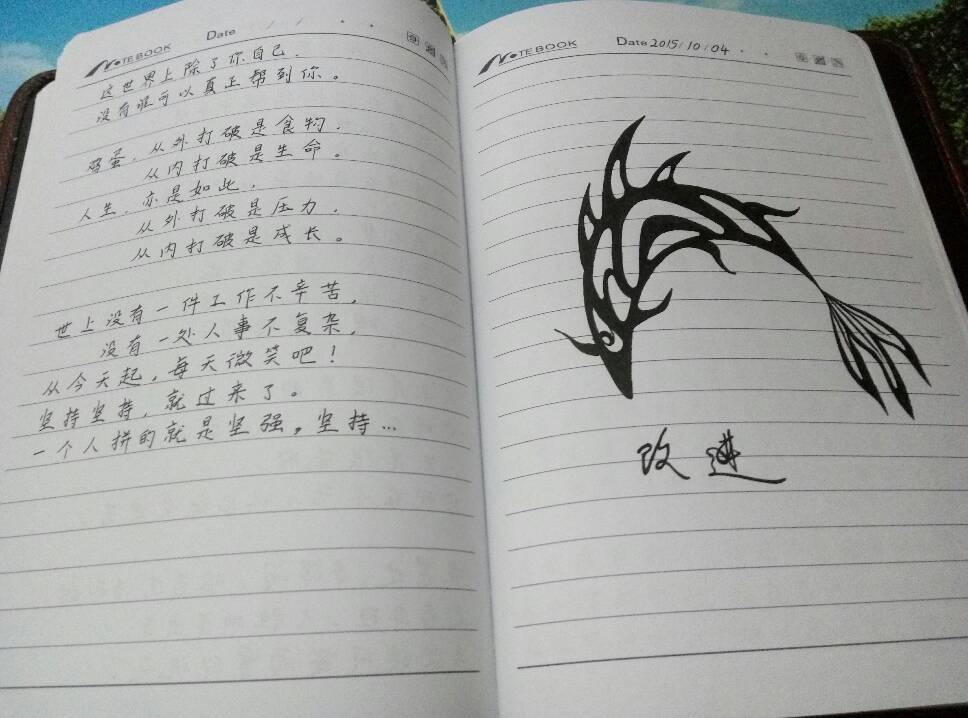 NOTEBOOK
Date
这世界上除了你自己.
没有谁可以真正帮到你。
鸡蛋.从外打破是食物.
从内打破是生命。
人生.亦是如此.
从外打破是压力.
从内打破是成长。
世上没有一件工作不辛苦,
没有一处人事不复杂,
从今天起,每天微笑吧!
坚持坚持,就过来了。
一个人拼的就是坚强,坚持...
NOTEBOOK
Date 2015/10/04
改进